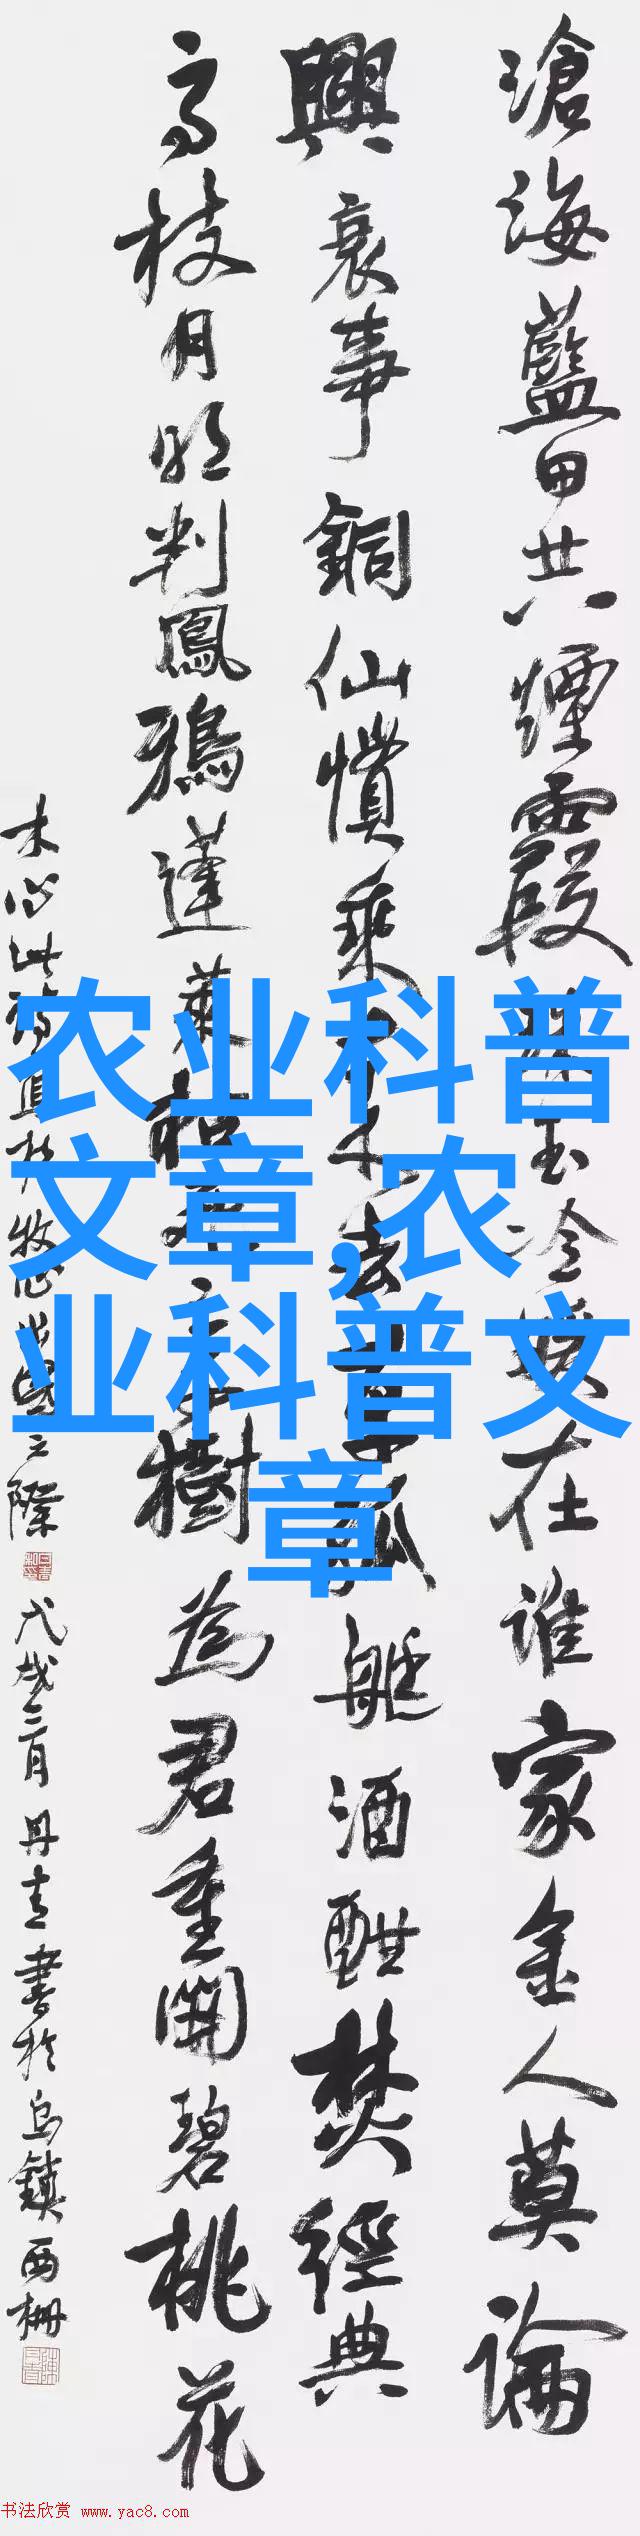 滄海藍田共煙霞玉冷在誰家金人莫論
興衰事銅仙慣乘去孤艇酒酣焚經典
高枝月明判鳳鴉蓬萊樹為君重開碧桃花
木心此之際
戊戌三月丹青書於烏鎮西柵
农业科普
文章,农
业科普文
章
书法欣赏 www.yac8.com